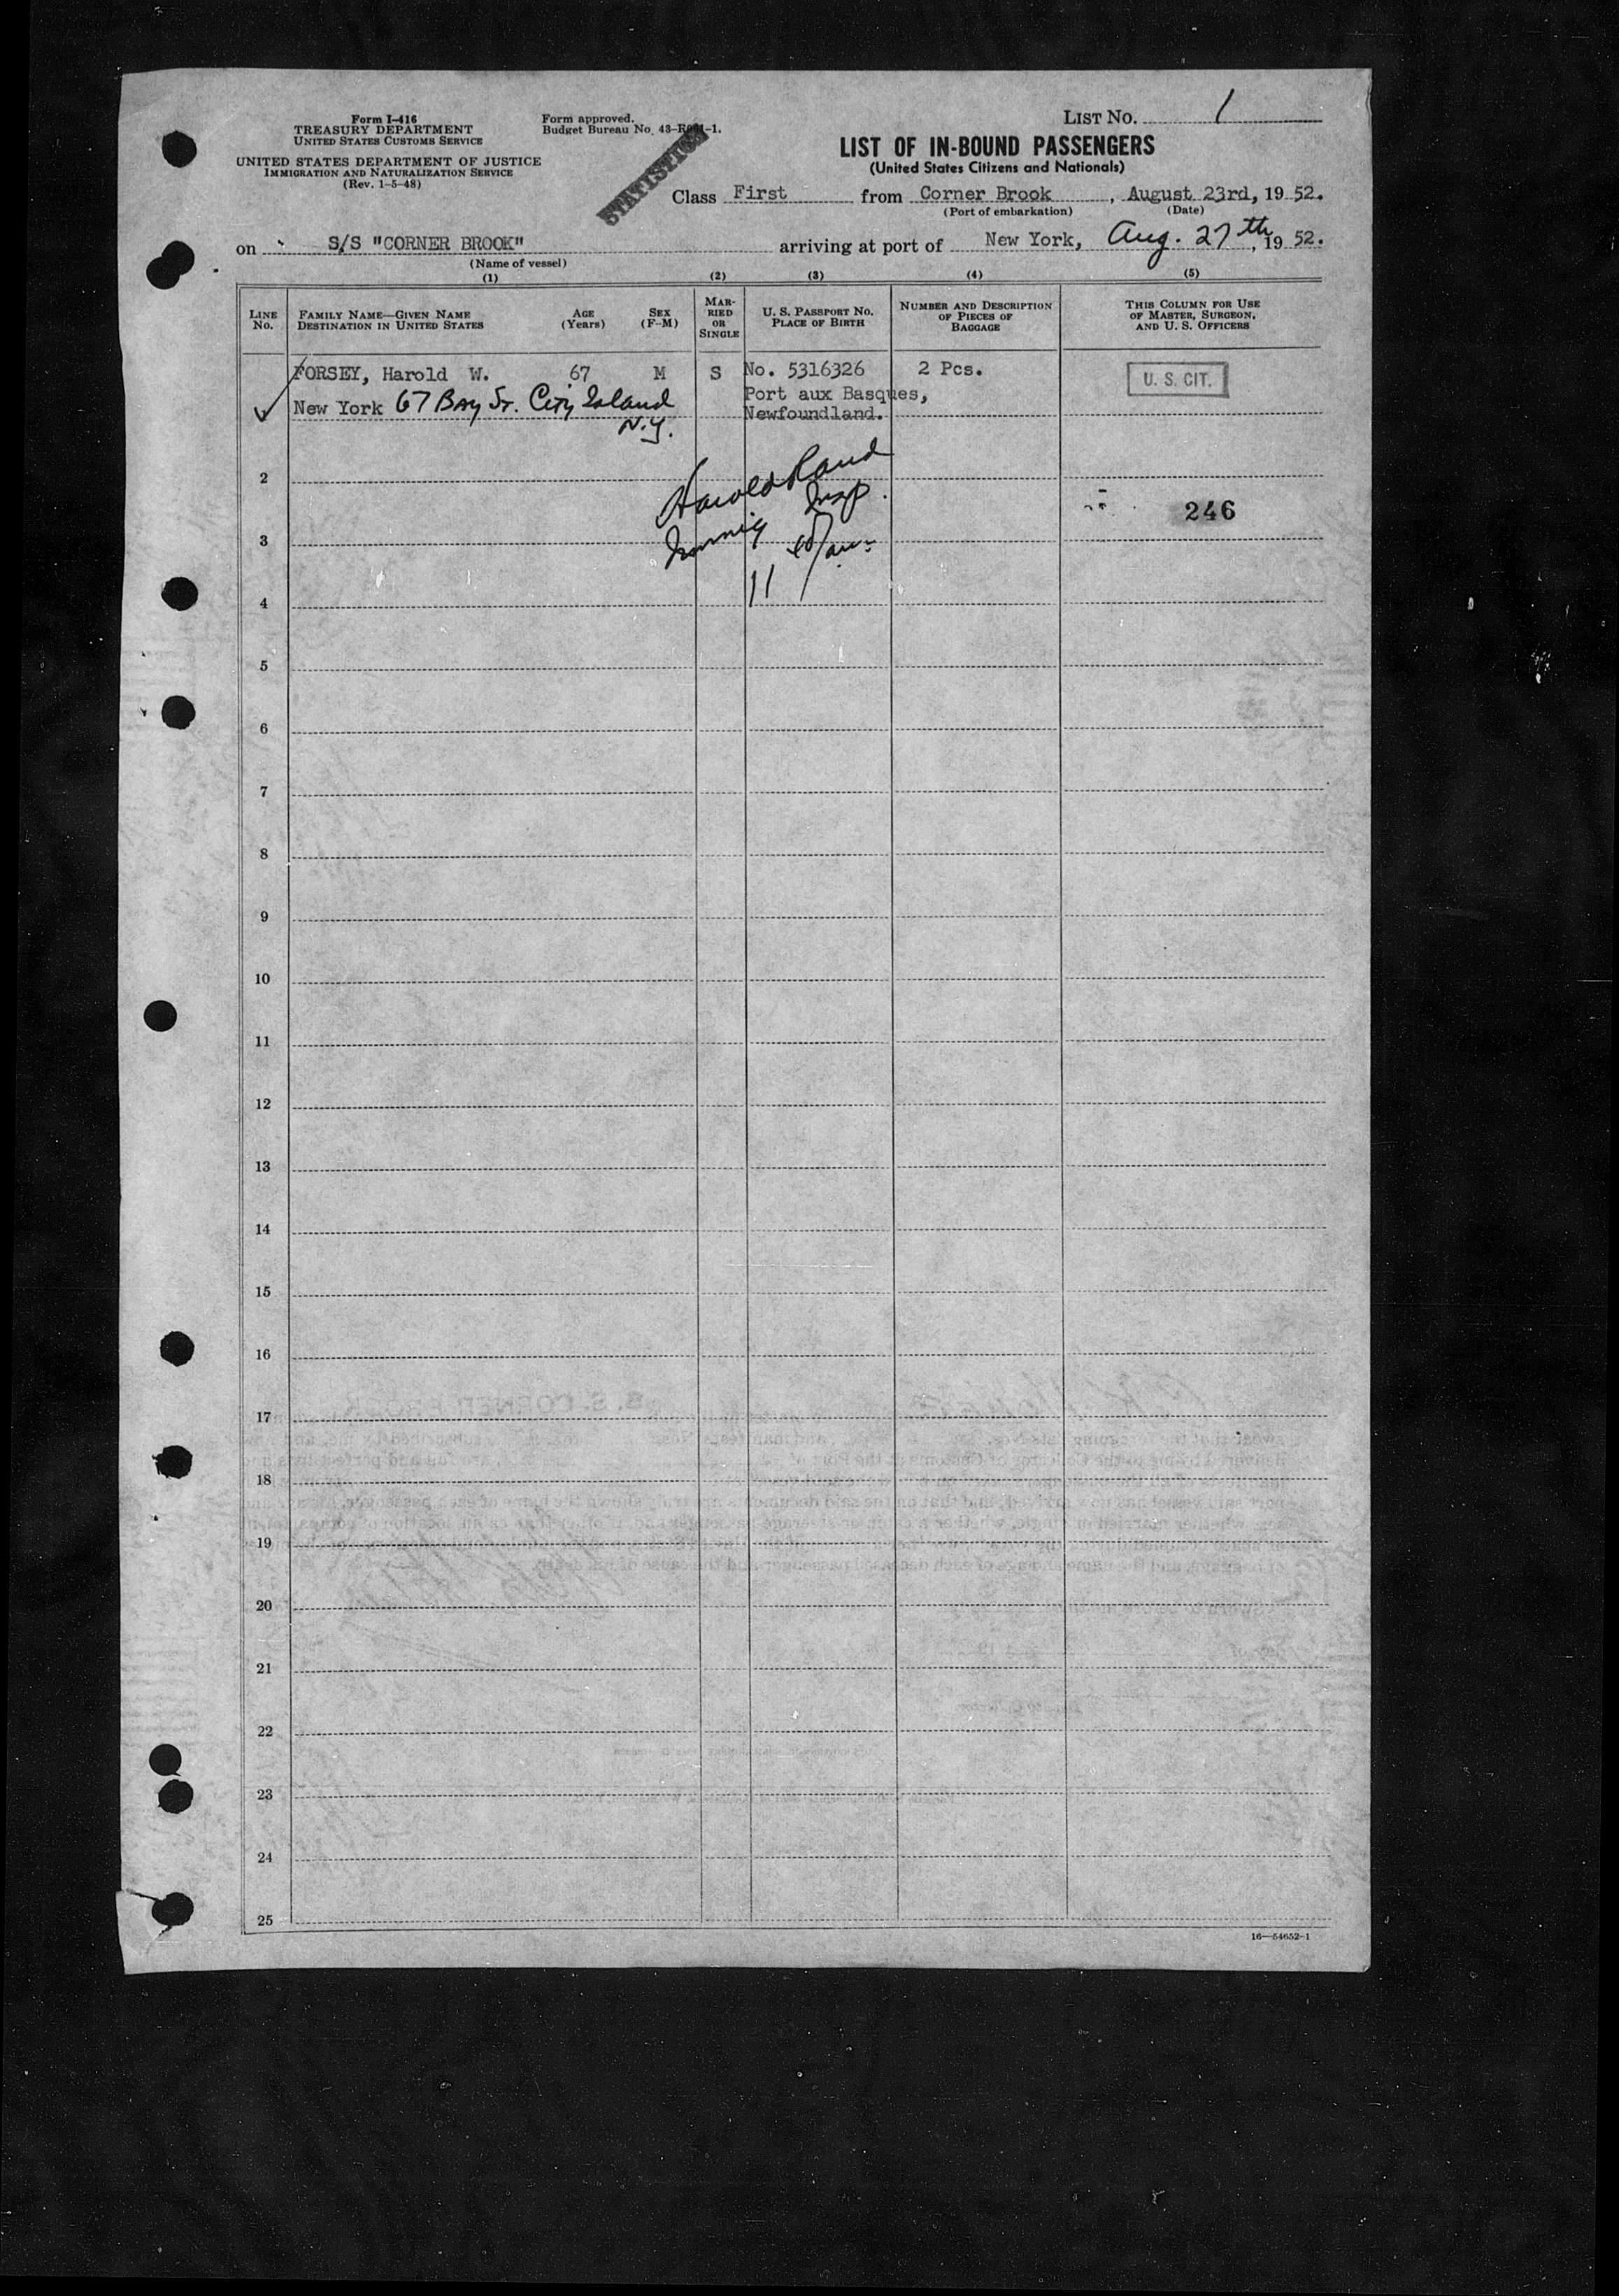 Form I-416
TREASURY DEPARTMENT
UNITED STATES CUSTOMS SERVICE
UNITED STATES DEPARTMENT OF JUSTICE
IMMIGRATION AND NATURALIZATION SERVICE
(Rev. 1-5-48)
Form approved.
Budget Bureau No. 43-R -1.
STATISTICS
LIST No. 1
LIST OF IN-BOUND PASSENGERS
(United States Citizens and Nationals)
Class First from Corner Brook, August 23rd, 1952.
(Port of embarkation) (Date)
on S/S "CORNER BROOK" arriving at port of New York, Aug. 27th, 1952.
(Name of vessel)
(1) (2) (3) (4) (5)
LINE No. FAMILY NAME—GIVEN NAME DESTINATION IN UNITED STATES AGE (Years) SEX (F-M) MARRIED OR SINGLE U. S. PASSPORT No. PLACE OF BIRTH NUMBER AND DESCRIPTION OF PIECES OF BAGGAGE THIS COLUMN FOR USE OF MASTER, SURGEON, AND U. S. OFFICERS
FORSEY, Harold W. 67 M S No. 5316326 2 Pcs. U. S. CIT.
New York 67 Bay St. City Island N.Y. Port aux Basques,
Newfoundland.
Harold Rand
Immig Insp.
11
246
2
3
4
5
6
7
8
9
10
11
12
13
14
15
16
17
18
19
20
21
22
23
24
25
16—54652-1